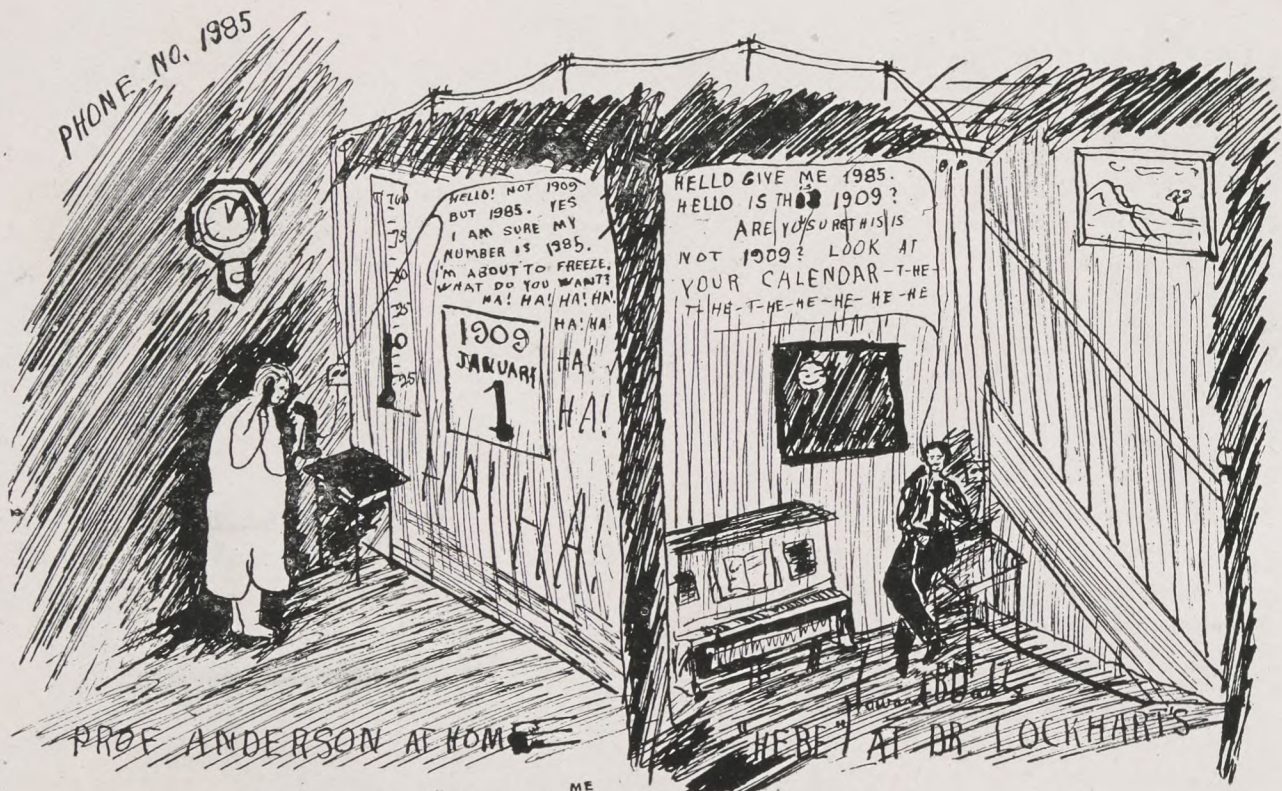 PHONE NO. 1985
HELLO! NOT 1909
BUT 1985. YES
I AM SURE MY
NUMBER IS 1985.
I'M ABOUT TO FREEZE.
WHAT DO YOU WANT?
HA! HA! HA! HA!
HA! HA!
HA!
HA!
HA! HA!
100
75
50
25
0
25
1909
JANUARY
1
HELLO GIVE ME 1985.
HELLO IS THIS 1909?
ARE YOU SURE THIS IS
NOT 1909? LOOK AT
YOUR CALENDAR-T-HE-
T-HE-T-HE-HE-HE-HE-HE
Howard
PROF ANDERSON AT HOME
"HEBE" AT DR. LOCKHART'S
ME